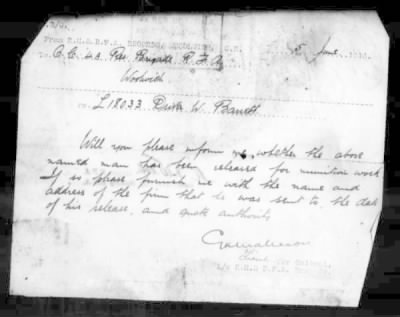 From R.H.& R.F.A. RECORDS, WOOLWICH, S.E. 5 June
To O.C. 4 A Res. Brigade R.F.A.
Woolwich
re L18033 Driver W. Barrett
Will you please inform me whether the above
named man has been released for munition work
If so please furnish me with the name and
address of the firm that he was sent to, the date
of his release, and quote authority
for Colonel,